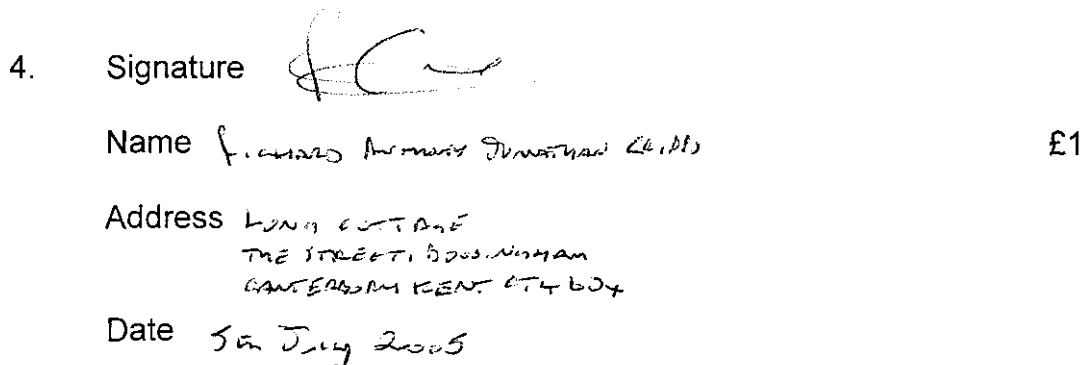 4. Signature
Name RICHARD ANTHONY JONATHAN £1
Address LONG COTTAGE
THE STREET, BOSSINGHAM
CANTERBURY KENT CT4 6DX
Date 5th July 2005